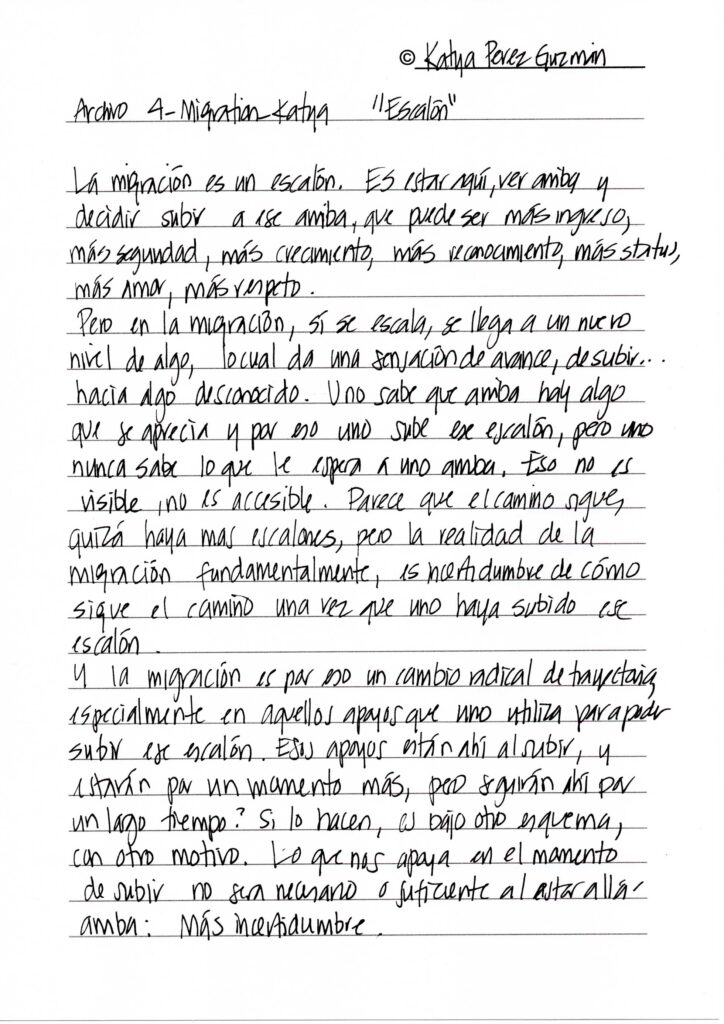 © Katya Perez Guzmán
Archivo 4-Migration-Katya "Escalón"
La migración es un escalón. Es estar aquí, ver arriba y
decidir subir a ese arriba, que puede ser más ingreso,
más seguridad, más crecimiento, más reconocimiento, más status,
más amor, más respeto.
Pero en la migración, si se escala, se llega a un nuevo
nivel de algo, lo cual da una sensación de avance, de subir...
hacia algo desconocido. Uno sabe que arriba hay algo
que se aprecia y por eso uno sube ese escalón, pero uno
nunca sabe lo que le espera a uno arriba. Eso no es
visible, no es accesible. Parece que el camino sigue,
quizá haya mas escalones, pero la realidad de la
migración fundamentalmente, es incertidumbre de cómo
sigue el camino una vez que uno haya subido ese
escalón.
Y la migración es por eso un cambio radical de trayectoria,
especialmente en aquellos apoyos que uno utiliza para poder
subir ese escalón. Esos apoyos están ahí al subir, y
estarán por un momento más, pero seguirán ahí por
un lago tiempo? Si lo hacen, es bajo otro esquema,
con otro motivo. Lo que nos apoya en el momento
de subir no sera necesario o suficiente al estar allá
arriba: Más incertidumbre.